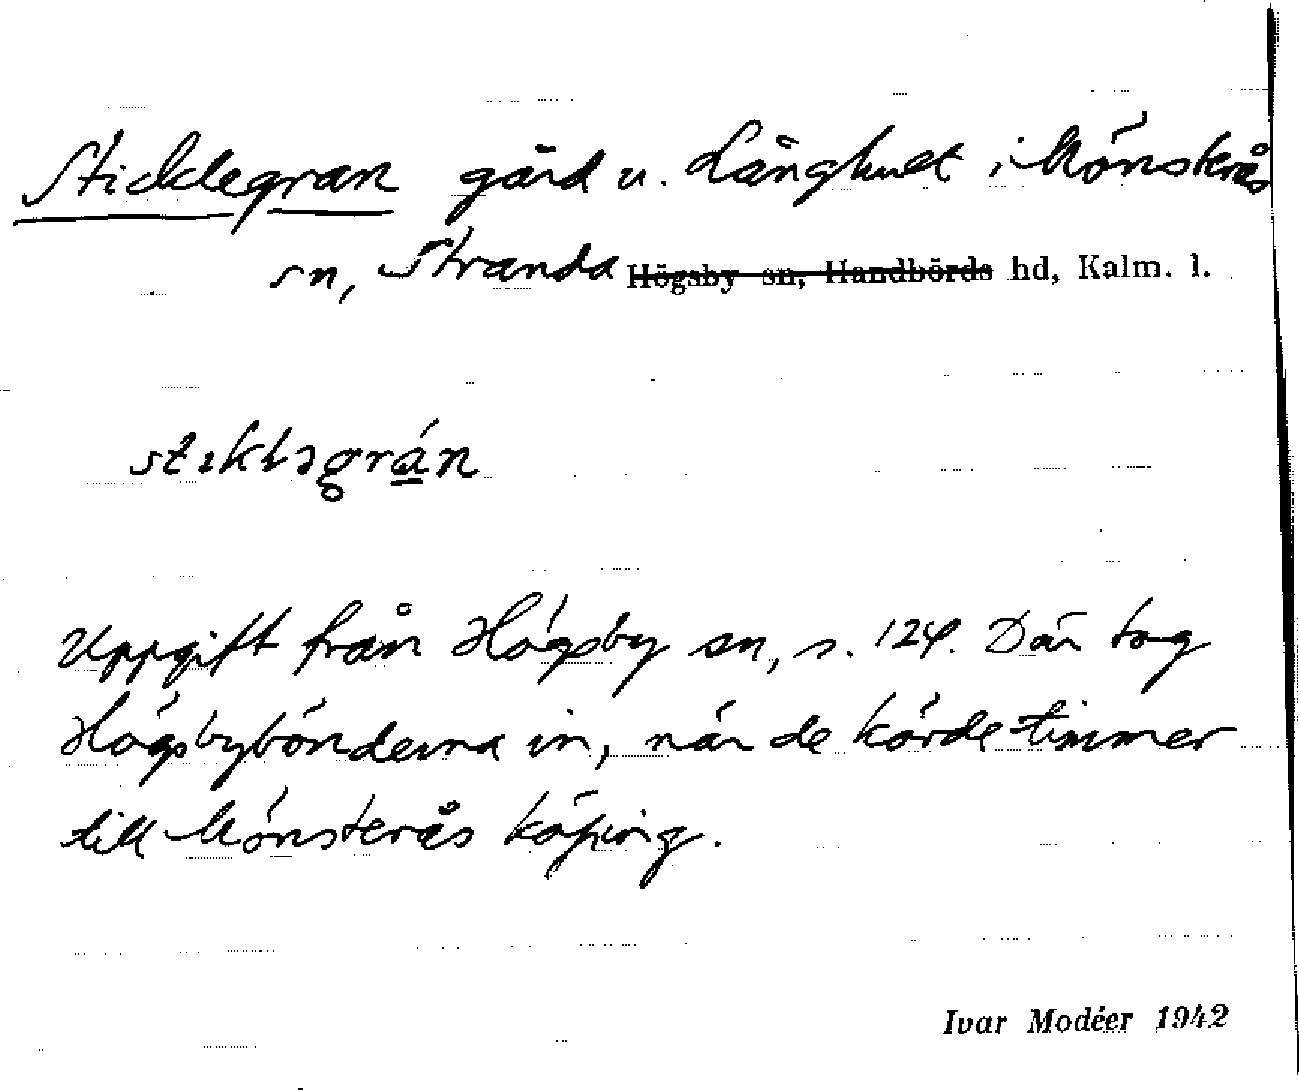 Sticklegran gård u. Långhult i Mönsterås
sn, Stranda ~~Högsby sn, Handbörds~~ hd, Kalm. l.
stıkləgrán
Uppgift från Högsby sn, s. 124. Där tog
Högsbybönderna in, när de körde timmer
till Mönsterås köping.
Ivar Modéer 1942